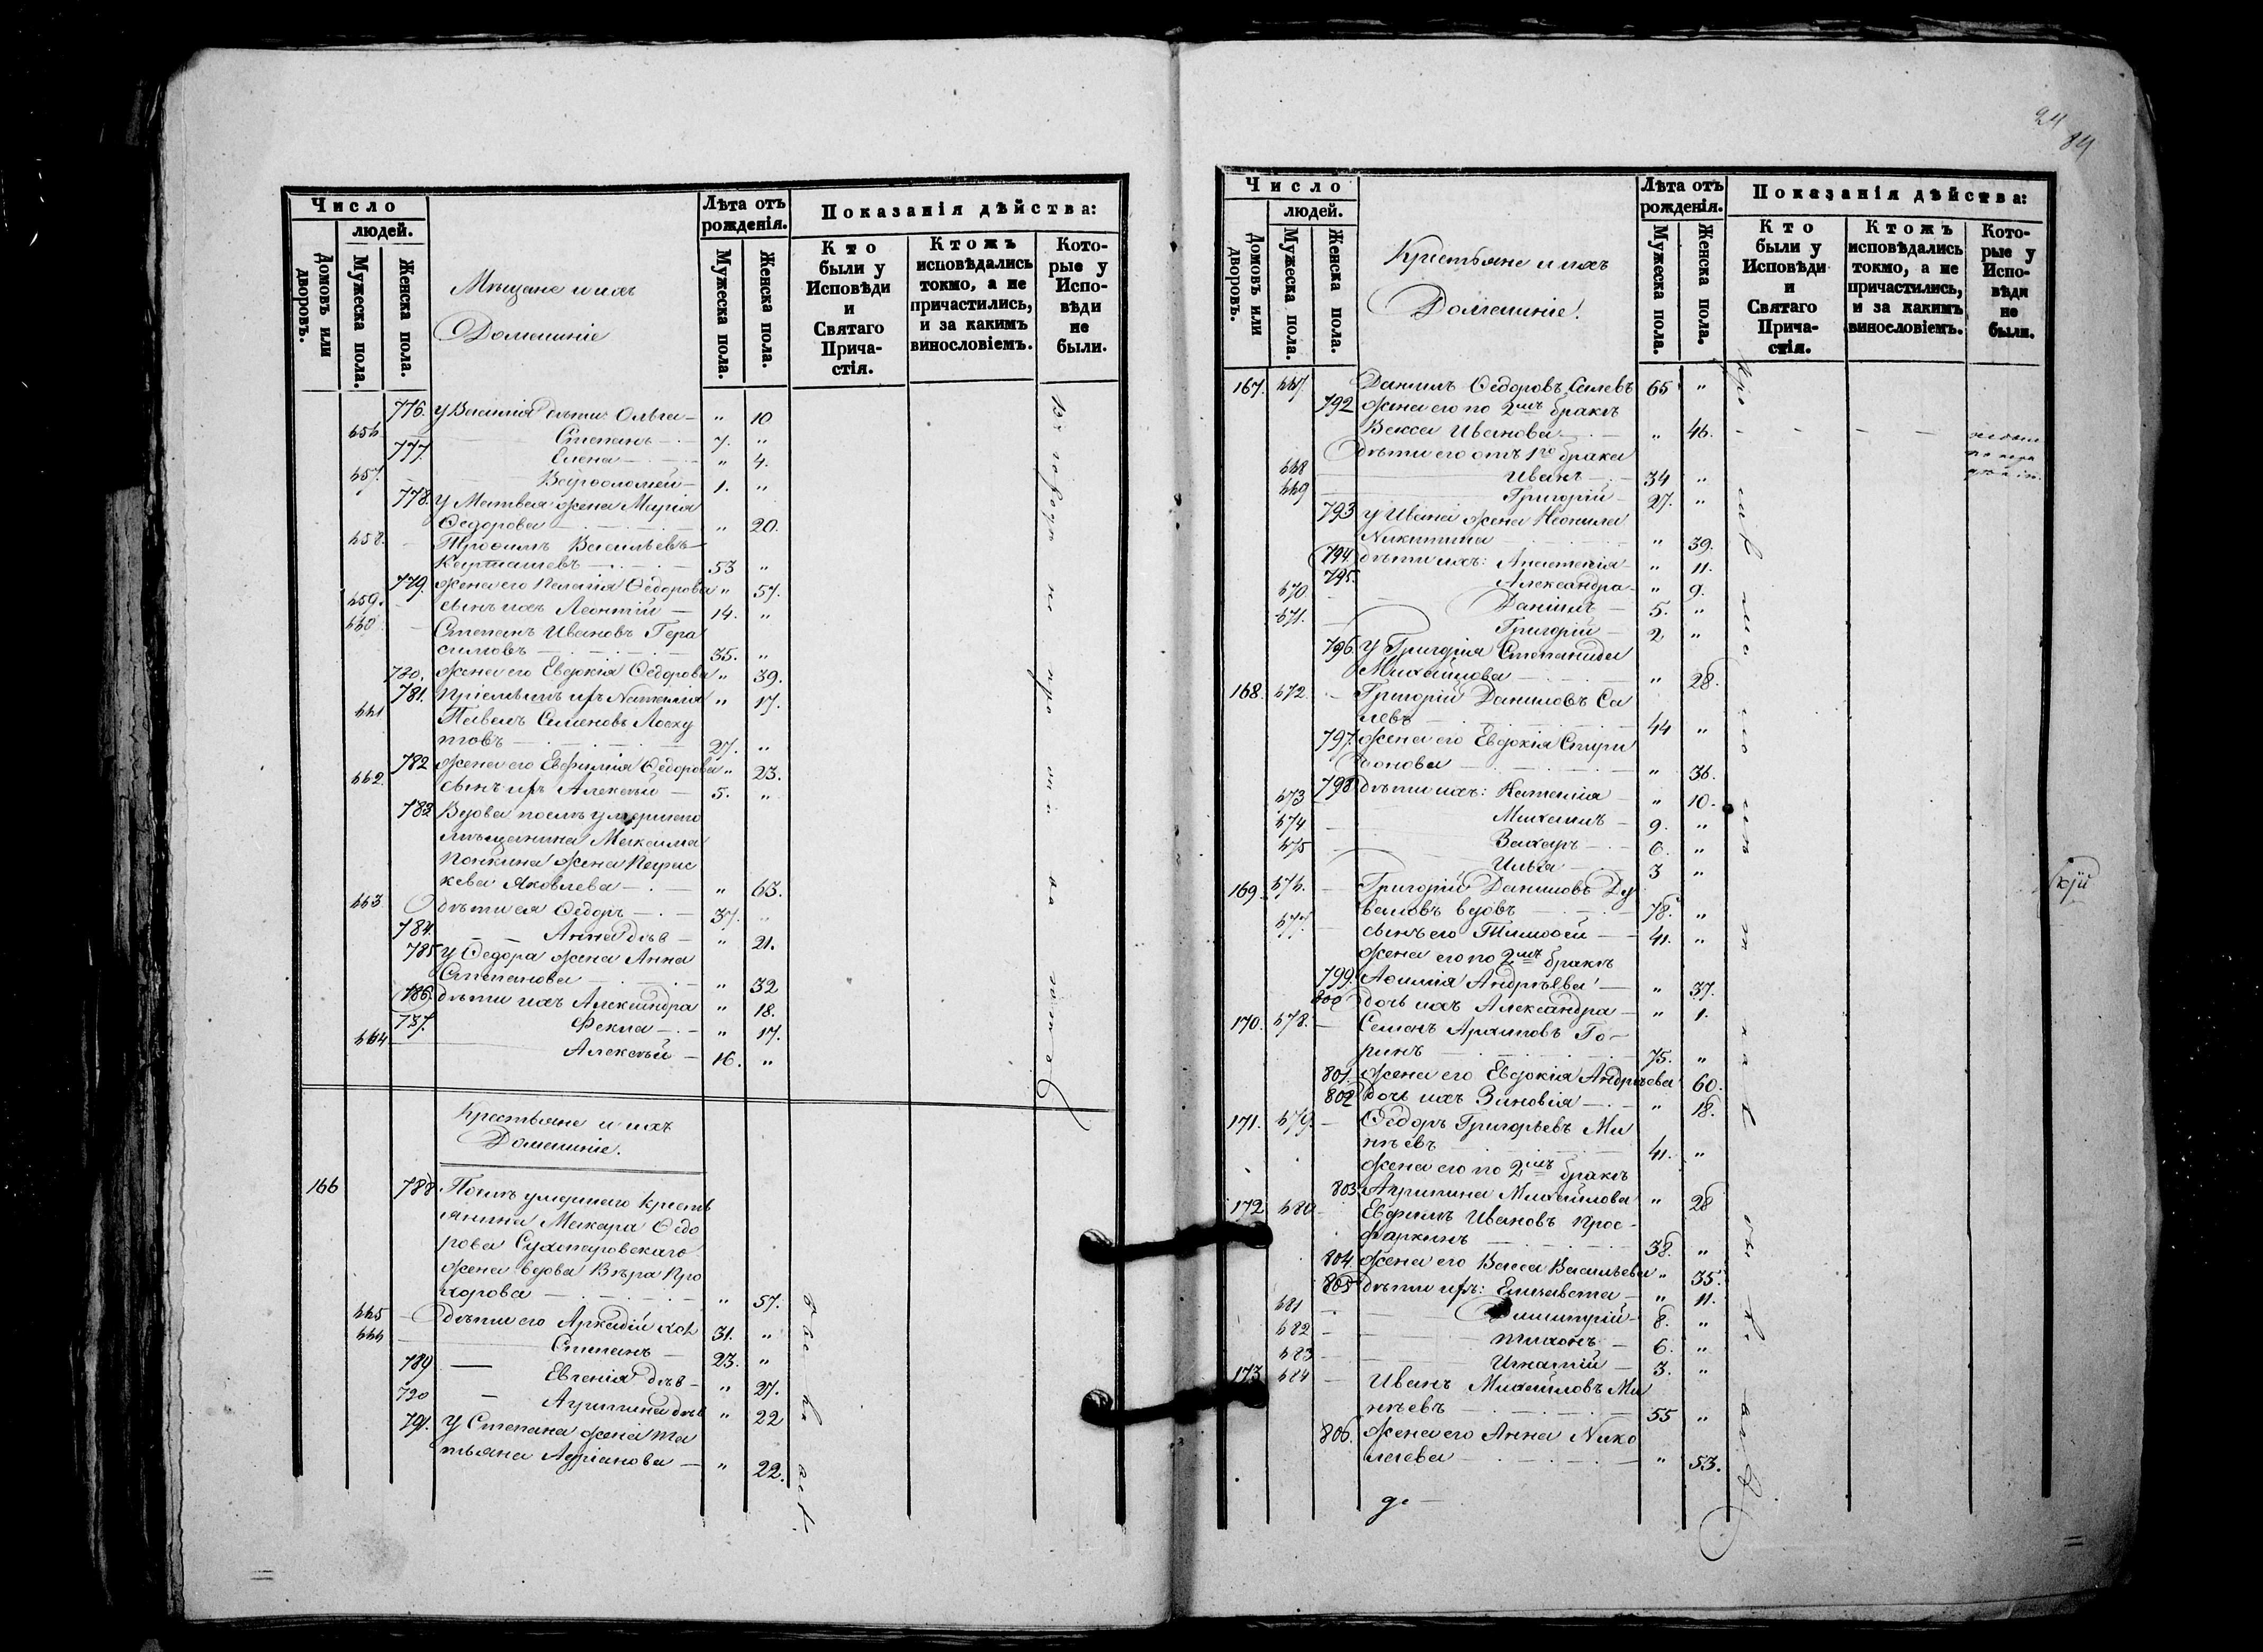 Число
людей.
Домовъ или дворовъ.
Мужеска пола.
Женска пола.
Мещане и ихъ
Домашніе
Лѣта отъ рожденія.
Мужеска пола.
Женска пола.
Показанія дѣйства:
Кто были у Исповѣди и Святаго Прича-стія.
Ктожъ исповѣдались токмо, а не причастились, и за какимъ винословіемъ.
Кото-рые у Испо-вѣди не были.
776. у Василія дѣти: Ольга — " 10
656. Степанъ — 7. "
777. Елена — " 4.
657. Варѳоломей — 1. "
778. у Матвея жена Марія
Ѳедорова — " 20.
658. Трофимъ Васильевъ
Карташевъ — 53 "
779. жена его Пелагія Ѳедорова " 57.
659. сынъ ихъ Леонтій — 14. "
660. Степанъ Ивановъ Гера
симовъ — 35. "
780. жена его Евдокія Ѳедорова " 39.
781. пріемышъ ихъ Наталія " 17.
661 Павелъ Семеновъ Лоску
товъ — 27. "
782 жена его Евфимія Ѳедорова " 23.
662. сынъ ихъ Алексѣй — 5. "
783 Вдова послѣ умершаго
мѣщанина Максима
Понкина жена Парас
кева Яковлева — " 63.
663 дѣти ея Ѳедоръ — 37. "
784. Анна дѣв — " 21.
785 у Ѳедора жена Анна
Степанова — " 32
786. дѣти ихъ Александра " 18.
787. Фекла — " 17.
664 Алексѣй — 16. "
Крестьяне и ихъ
Домашніе.
166 788 Послѣ умершаго крестъ
янина Макара Ѳедо
рова Сухтаровскаго
жена вдова Вѣра Про
хорова — " 57.
665 — дѣти его Аркадій хол 31. "
666 Степанъ — 23. "
789 — Евгенія дѣв — " 27.
790 — Агрипина дѣв " 22
791. У Степана жена Та
тьяна Адріанова — " 22.
24
84
Число
людей.
Домовъ или дворовъ.
Мужеска пола.
Женска пола.
Крестьяне и ихъ
Домашніе.
Лѣта отъ рожденія.
Мужеска пола.
Женска пола.
Показанія дѣйства:
Кто были у Исповѣди и Святаго Прича-стія.
Ктожъ исповѣдались токмо, а не причастились, и за какимъ винословіемъ.
Кото-рые у Испо-вѣди не были.
167. 667. Даниилъ Ѳедоровъ Салевъ 65 "
792 жена его по 2мъ бракѣ
Васса Иванова — " 46.
дѣти его отъ 1го брака
668 Иванъ — 34 "
669 Григорій — 27. "
793 у Ивана жена Неонила
Никитина — " 39.
794 дѣти ихъ: Анастасія — " 11.
795. Александра — " 9.
670. Даніилъ — 5. "
671. Григорій — 2 "
796. У Григорія Степанида
Михайлова — " 28.
168. 672. — Григорій Даниловъ Са
левъ — 44 "
797. жена его Евдокія Спири
донова — " 36.
798. дѣти ихъ: Наталія — " 10.
673 Михаилъ — 9. "
674 Захаръ — 6. "
675 Илья — 3 "
169. 676. — Григорій Даниловъ Ду
валовъ вдовъ — 78. "
677. сынъ его Тимофей — 41. "
жена его по 2мъ бракѣ
799. Аѳимія Андрѣева — " 37.
800 дочь ихъ Александра — " 1.
170. 678. — Семенъ Архиповъ Го-
ринъ — 75. "
801. жена его Евдокія Андрѣева 60.
802 дочь ихъ Зиновія — " 18.
171. 679. — Ѳедоръ Григорьевъ Ми
нѣевъ — 41. "
жена его по 2мъ бракѣ
803 Агрипина Михайлова " 28
172 680 Евфимъ Ивановъ Прос-
фаркинъ — 38. "
804. жена его Васса Васильева " 35.
805 дѣти ихъ: Елизавета — " 11.
681 — Димитрій — 8. "
682 — Тихонъ — 6. "
683 — Игнатій — 3. "
173 684 — Иванъ Михайловъ Ми
нѣевъ — 55 "
806. жена его Анна Нико
лаева — " 53.